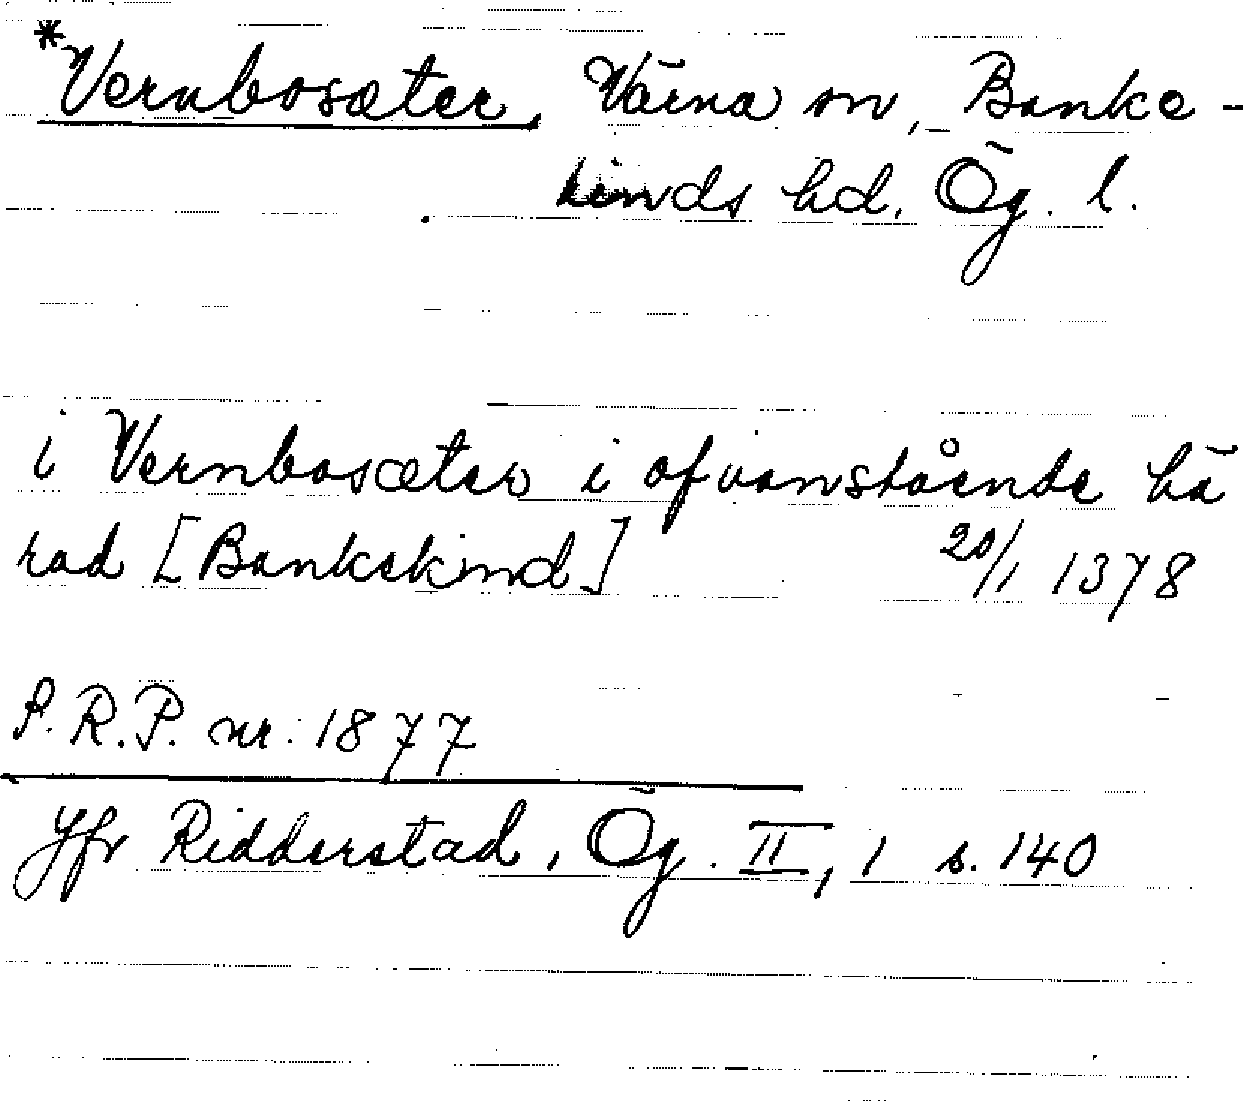 *Vernbosæter, Värna sn, Banke-
kinds hd, Ög. l.
i Vernbosæter i ofvanstående hä
rad [Bankekind] 20/1 1378
P.R.P. nr: 1877
Jfr Ridderstad, Ög. II, 1 s. 140